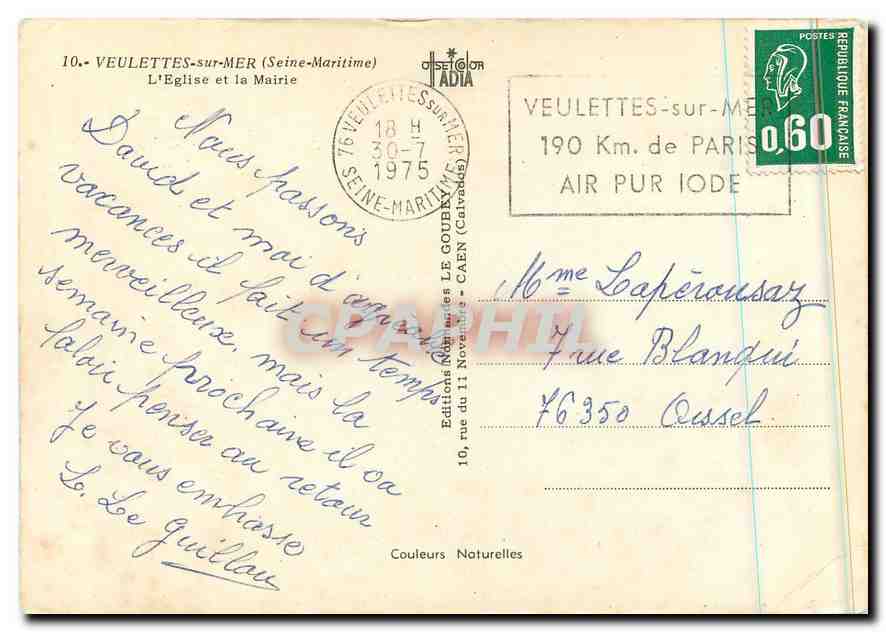 10.- VEULETTES-sur-MER (Seine-Maritime)
L'Eglise et la Mairie
OFFSETCOLOR
ADIA
76 VEULETTES SUR MER
18 H
30-7
1975
SEINE-MARITIME
VEULETTES-sur-MER
190 Km. de PARIS
AIR PUR IODE
POSTES
REPUBLIQUE FRANÇAISE
0,60
Nous passons
David et moi d'agréable
vacances il fait un temps
merveilleux, mais la
semaine prochaine il va
falloir penser au retour
Je vous embrasse
L. Le Guillou
Editions Normandes LE GOUBEY
10, rue du 11 Novembre - CAEN (Calvados)
CPARHIL
Mme Lapérousaz
7 rue Blanqui
76350 Oissel
Couleurs Naturelles